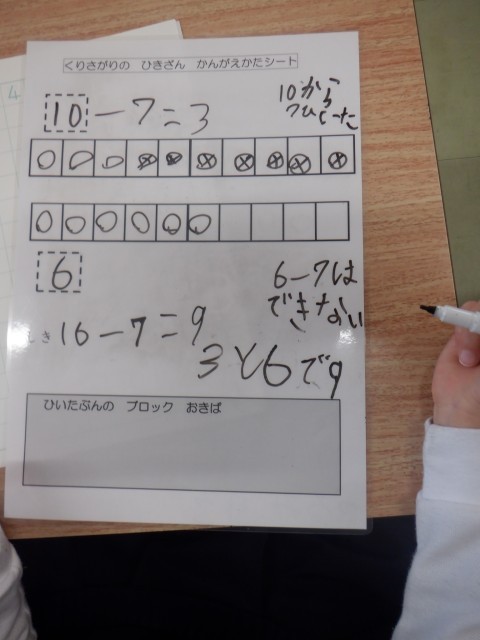 くりさがりの ひきざん かんがえかたシート
10-7=3
10から
7ひいた
6
6-7は
できない
き 16-7=9
3と6で9
ひいたぶんの ブロック おきば